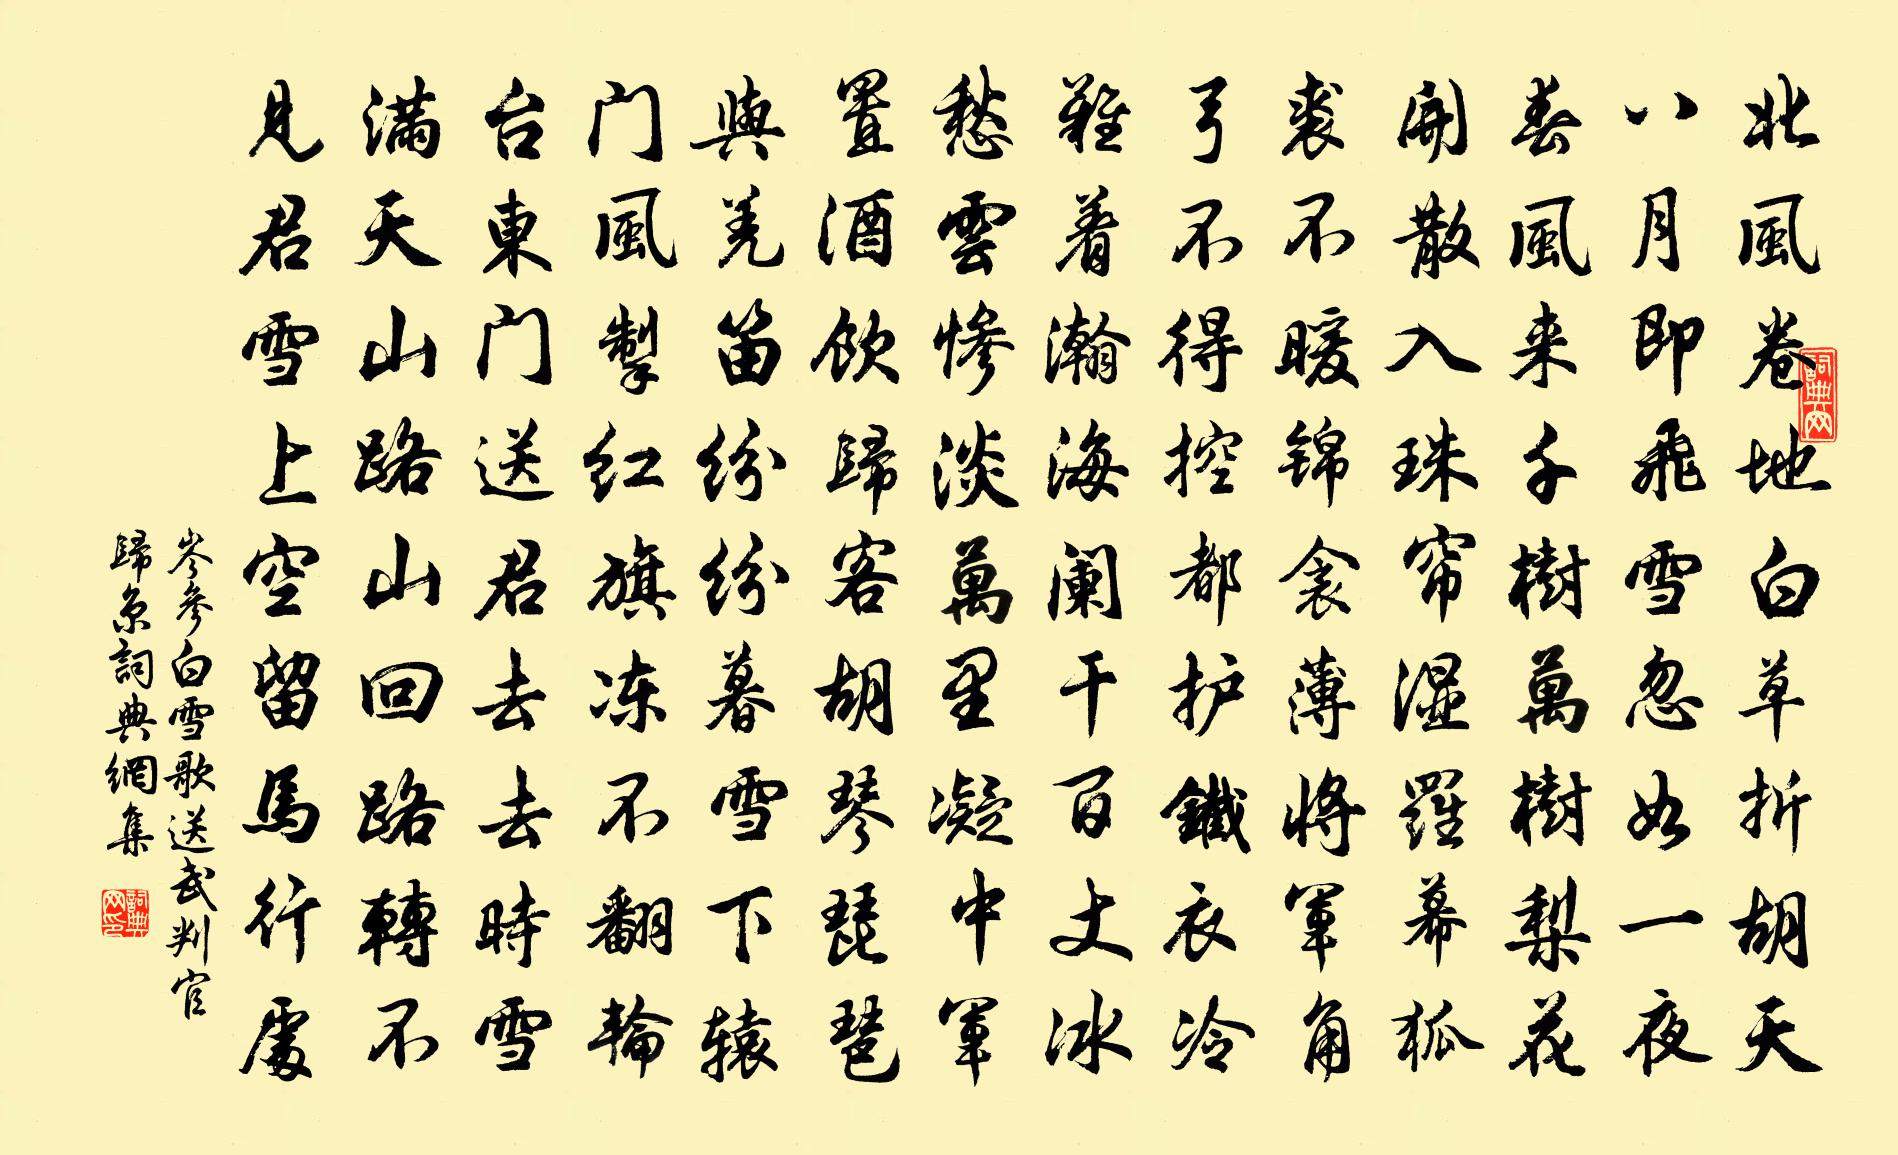 北風卷地白草折胡天
八月即飛雪忽如一夜
春風来千樹萬樹梨花
開散入珠帘湿羅幕狐
裘不暖锦衾薄將軍角
弓不得控都护鐵衣冷
難着瀚海阑干百丈冰
愁雲惨淡萬里凝中軍
置酒飲歸客胡琴琵琶
與羌笛紛紛暮雪下辕
门風掣红旗冻不翻輪
台東门送君去去時雪
满天山路山回路轉不
見君雪上空留馬行處
岑參白雪歌送武判官
歸京詞典網集
詞典网
詞典网印